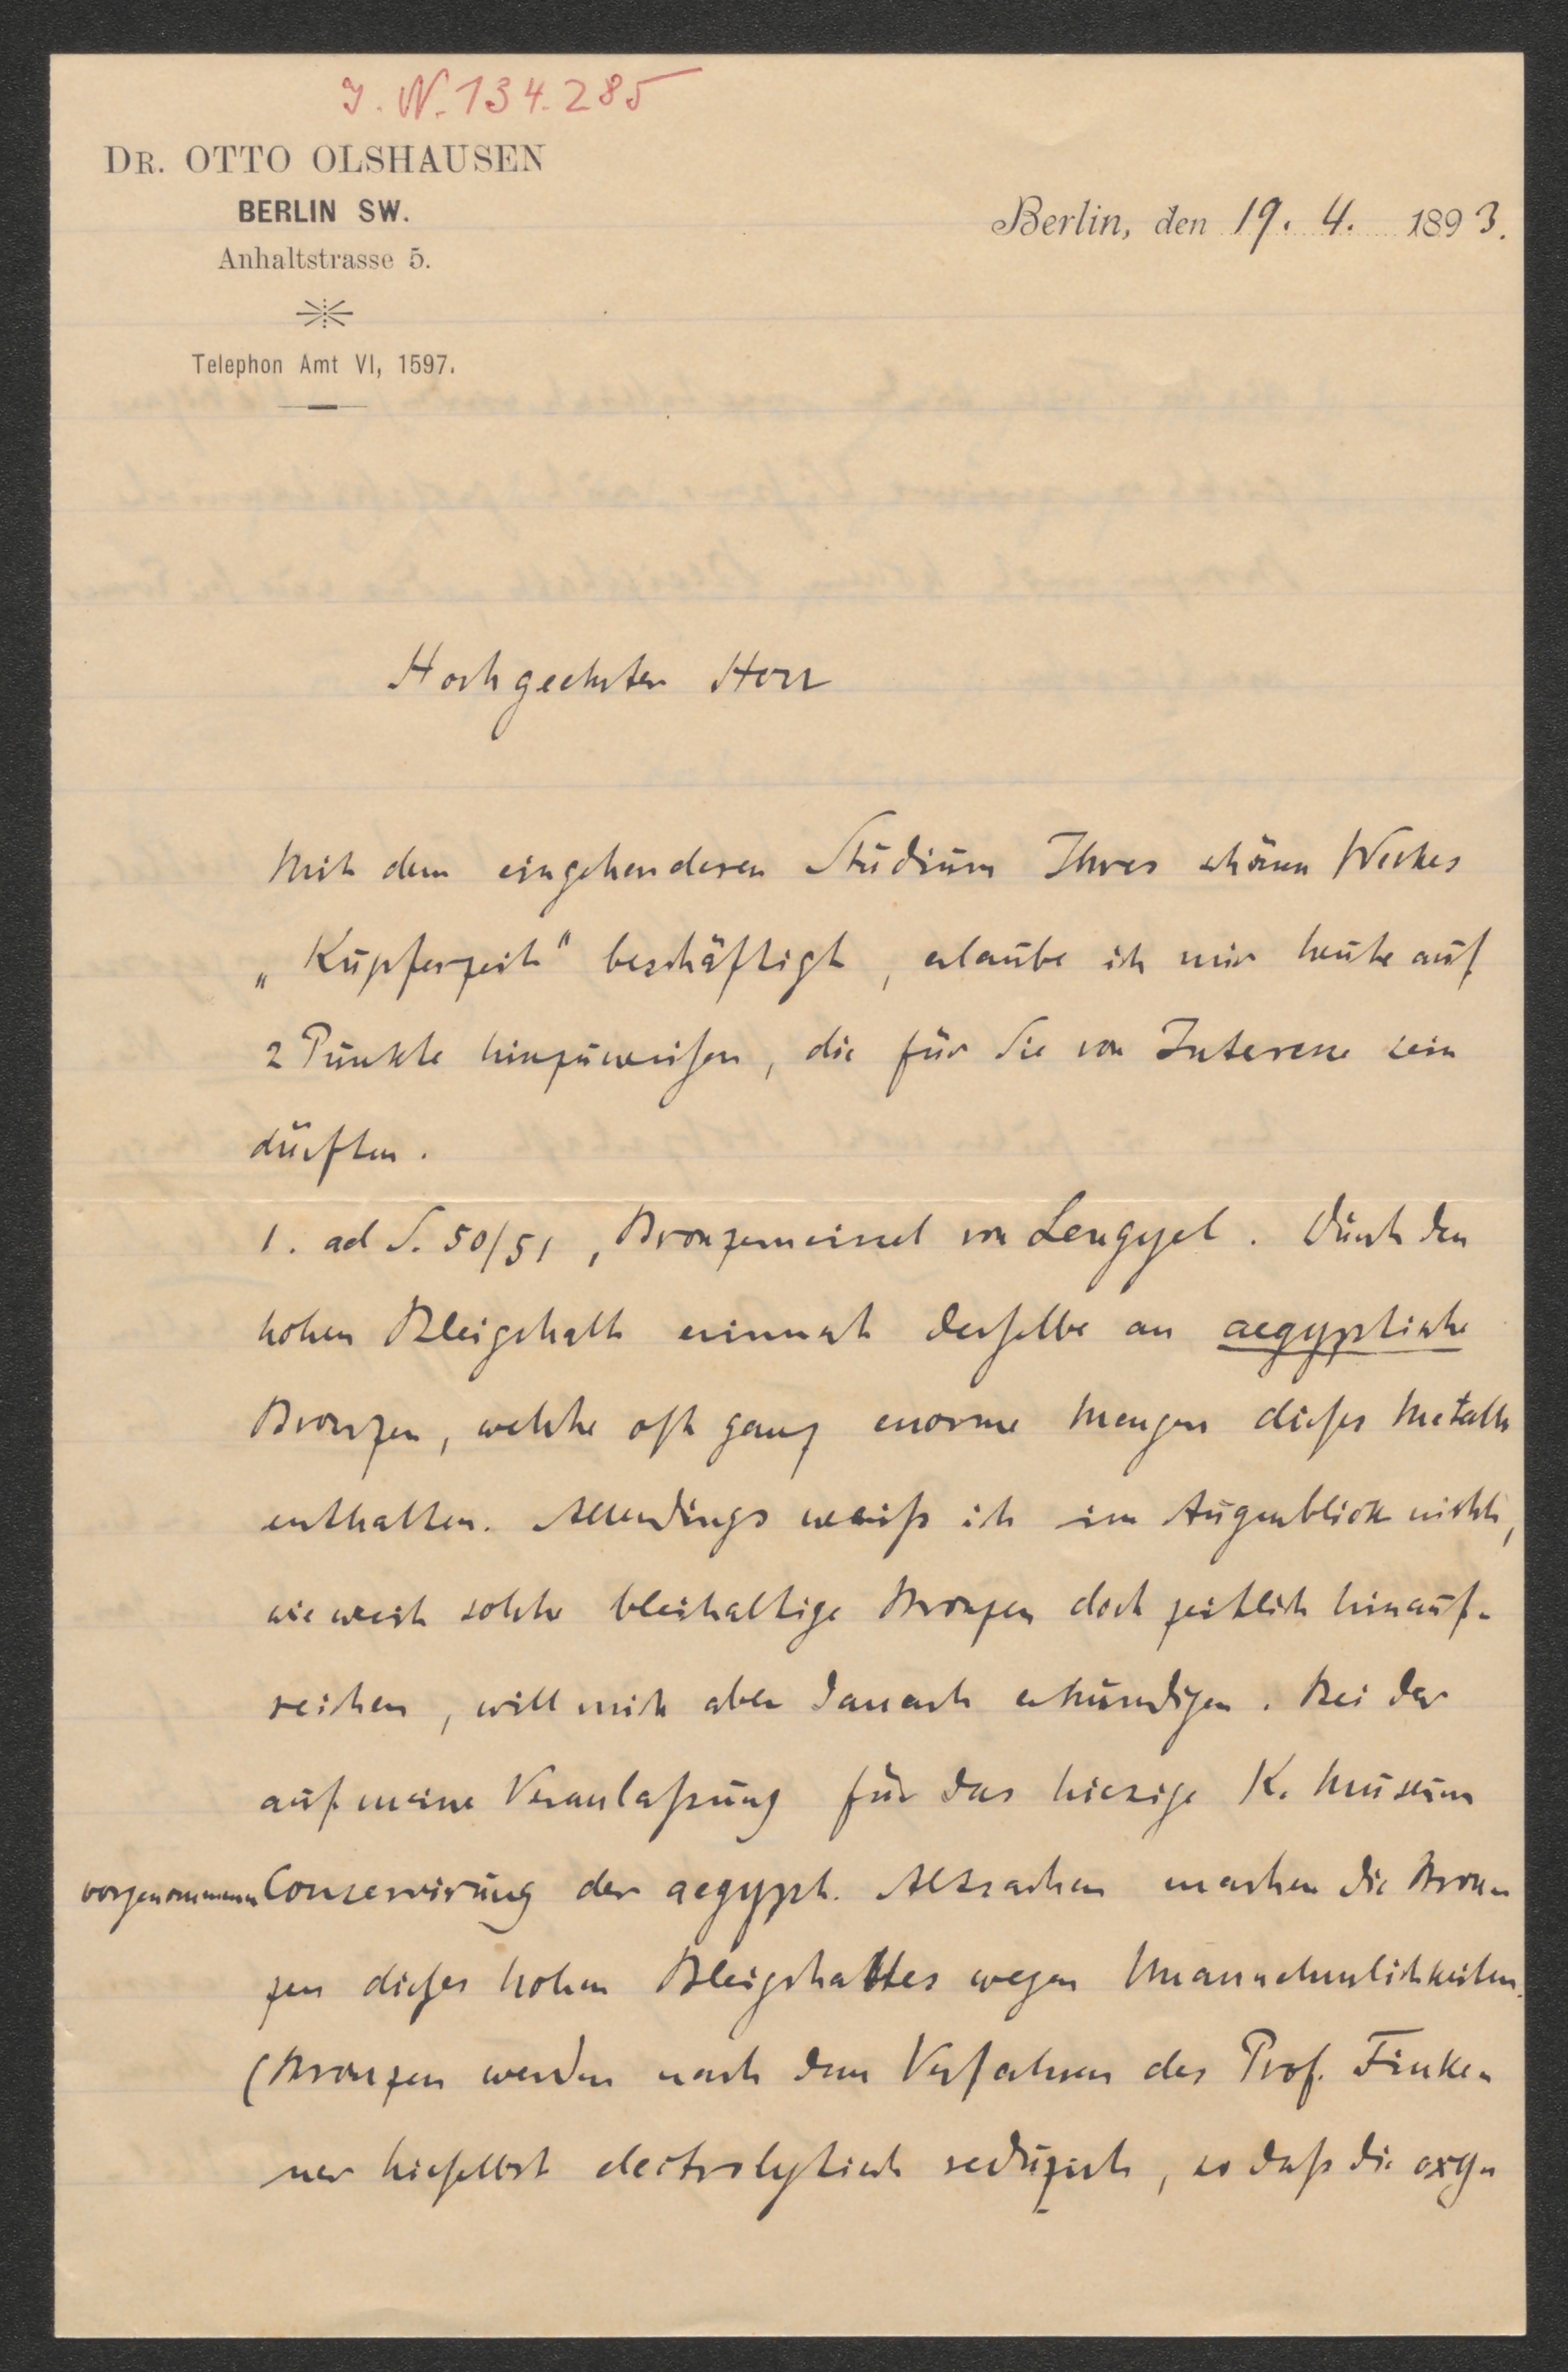 I. N. 134.285
DR. OTTO OLSHAUSEN
BERLIN SW.
Anhaltstrasse 5.
Telephon Amt VI, 1597.
Berlin, den 19. 4. 1893.
Hochgeehrter Herr
Mit dem eingehenderen Studium Ihres schönen Werkes
„Kupferzeit" beschäftigt, erlaube ich mir heute auf
2 Punkte hinzuweisen, die für Sie von Interesse sein
dürften.
1. ad S. 50/51, Bronzemeissel von Lengyel. Durch den
hohen Bleigehalt erinnert derselbe an aegyptische
Bronzen, welche oft ganz enorme Mengen dieses Metalls
enthalten. Allerdings weiss ich im Augenblick nicht,
wie weit solche bleihaltige Bronzen doch zeitlich hinauf-
reichen, will mich aber danach erkundigen. Bei der
auf meine Veranlassung für das hiesige K. Museum
vorgenommenen Conservirung der aegypt. Altsachen machen die Bron-
zen dieses hohen Bleigehaltes wegen Unannehmlichkeiten.
(Bronzen werden nach dem Verfahren des Prof. Finke-
ner hieselbst electrolytisch reduzirt, so dass die oxy-